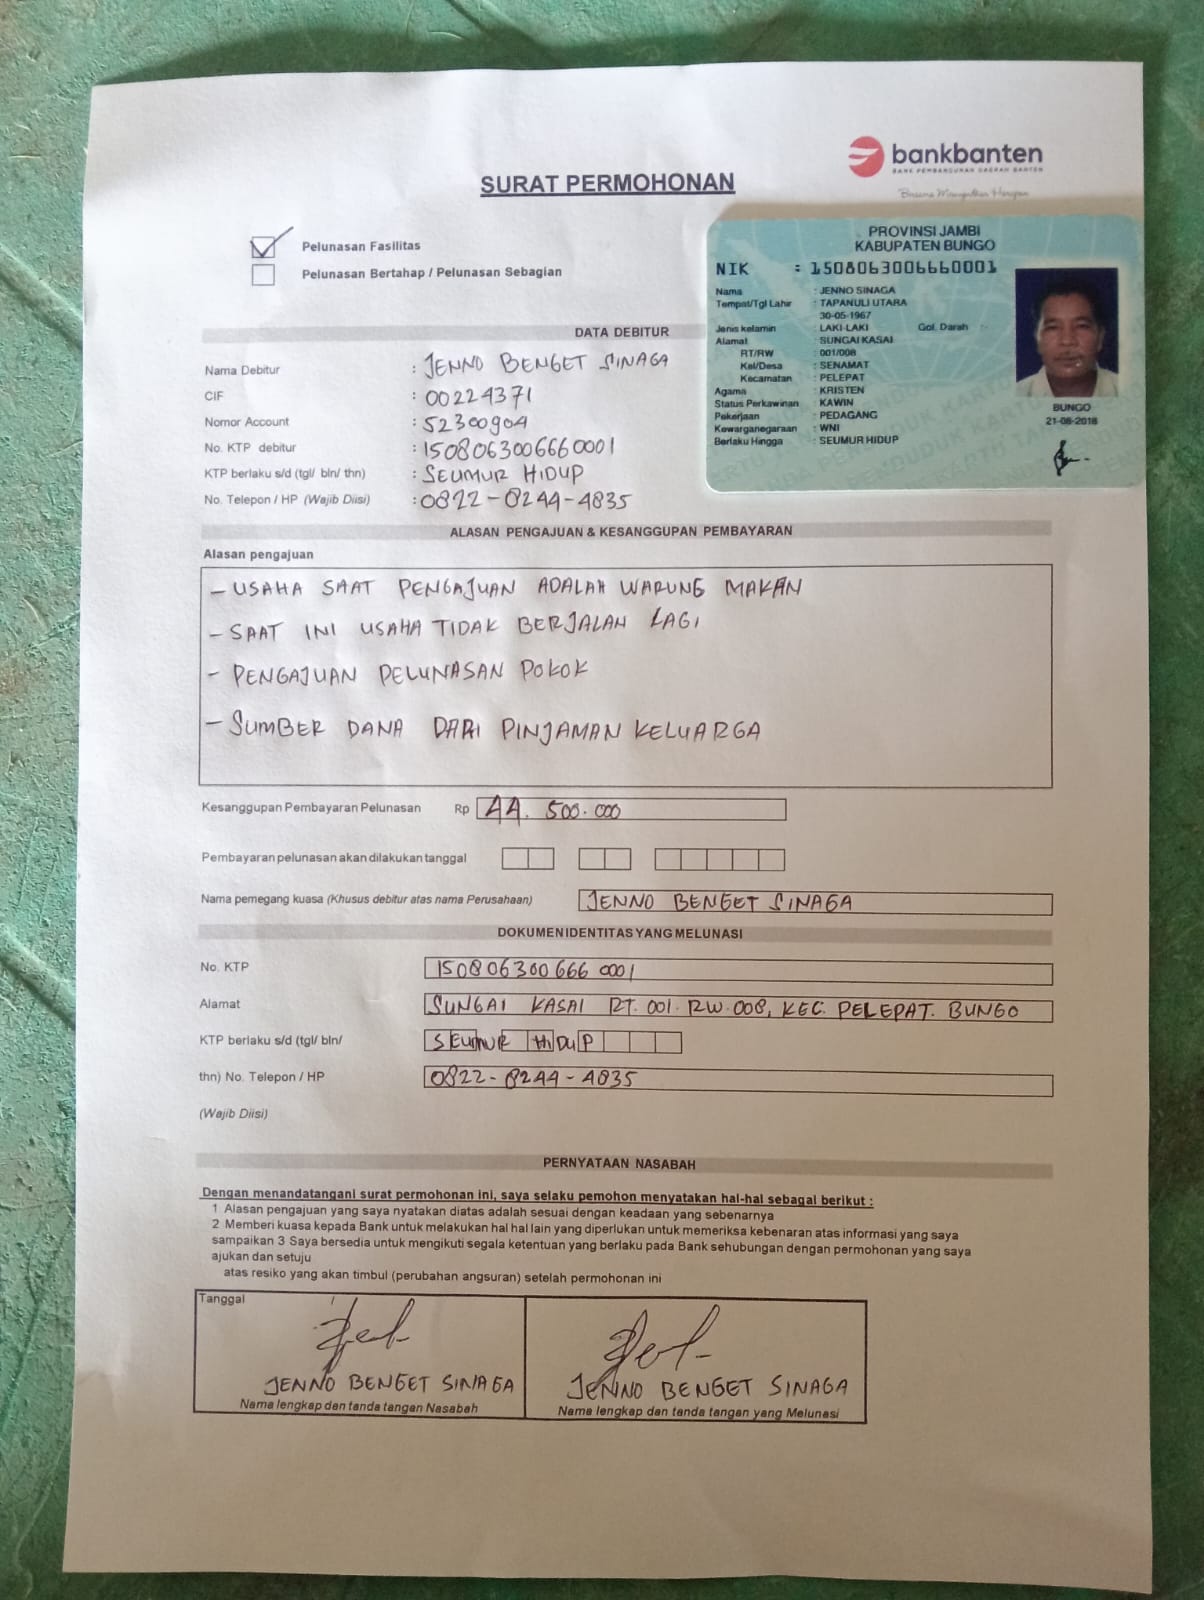 bankbanten
BANK PEMBANGUNAN DAERAH BANTEN
SURAT PERMOHONAN
Pelunasan Fasilitas
Pelunasan Bertahap / Pelunasan Sebagian
PROVINSI JAMBI
KABUPATEN BUNGO
NIK : 1508063006660001
Nama : JENNO SINAGA
Tempat/Tgl Lahir : TAPANULI UTARA
30-05-1967
Jenis kelamin : LAKI-LAKI Gol. Darah : -
Alamat : SUNGAI KASAI
RT/RW : 001/008
Kel/Desa : SENAMAT
Kecamatan : PELEPAT
Agama : KRISTEN
Status Perkawinan : KAWIN
Pekerjaan : PEDAGANG
Kewarganegaraan : WNI
Berlaku Hingga : SEUMUR HIDUP
BUNGO
21-08-2018
DATA DEBITUR
Nama Debitur : JENNO BENGET SINAGA
CIF : 00224371
Nomor Account : 52300904
No. KTP debitur : 1508063006660001
KTP berlaku s/d (tgl/ bln/ thn) : SEUMUR HIDUP
No. Telepon / HP (Wajib Diisi) : 0822-8244-4835
ALASAN PENGAJUAN & KESANGGUPAN PEMBAYARAN
Alasan pengajuan
- USAHA SAAT PENGAJUAN ADALAH WARUNG MAKAN
- SAAT INI USAHA TIDAK BERJALAN LAGI
- PENGAJUAN PELUNASAN POKOK
- SUMBER DANA DARI PINJAMAN KELUARGA
Kesanggupan Pembayaran Pelunasan Rp 44.500.000
Pembayaran pelunasan akan dilakukan tanggal
Nama pemegang kuasa (Khusus debitur atas nama Perusahaan) JENNO BENGET SINAGA
DOKUMEN IDENTITAS YANG MELUNASI
No. KTP 150806300 666 0001
Alamat SUNGAI KASAI RT. 001. RW. 008, KEC. PELEPAT. BUNGO
KTP berlaku s/d (tgl/ bln/ SEUMUR HIDUP
thn) No. Telepon / HP 0822-8244-4835
(Wajib Diisi)
PERNYATAAN NASABAH
Dengan menandatangani surat permohonan ini, saya selaku pemohon menyatakan hal-hal sebagai berikut :
1 Alasan pengajuan yang saya nyatakan diatas adalah sesuai dengan keadaan yang sebenarnya
2 Memberi kuasa kepada Bank untuk melakukan hal hal lain yang diperlukan untuk memeriksa kebenaran atas informasi yang saya
sampaikan 3 Saya bersedia untuk mengikuti segala ketentuan yang berlaku pada Bank sehubungan dengan permohonan yang saya
ajukan dan setuju
atas resiko yang akan timbul (perubahan angsuran) setelah permohonan ini
Tanggal
JENNO BENGET SINAGA JENNO BENGET SINAGA
Nama lengkap dan tanda tangan Nasabah Nama lengkap dan tanda tangan yang Melunasi